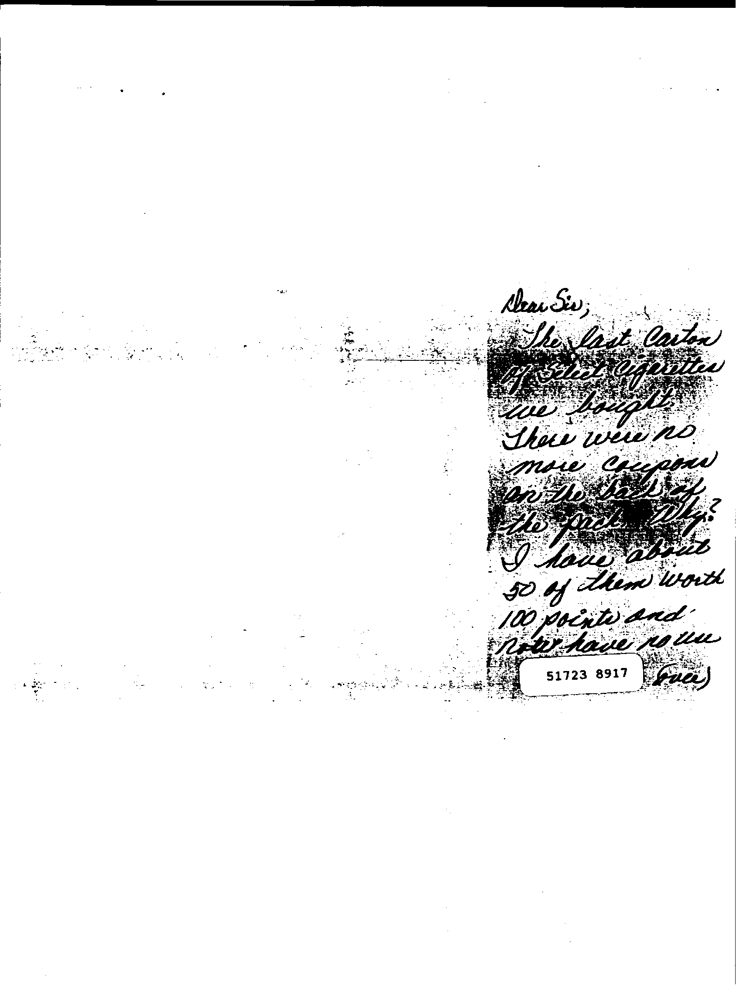 Dear Sir;
The last Carton
of Select Cigarettes
we bought
There were no
more Coupons
on the back of
the pack. Why?
I have about
50 of them worth
100 points and
have no use
51723 8917
(over)